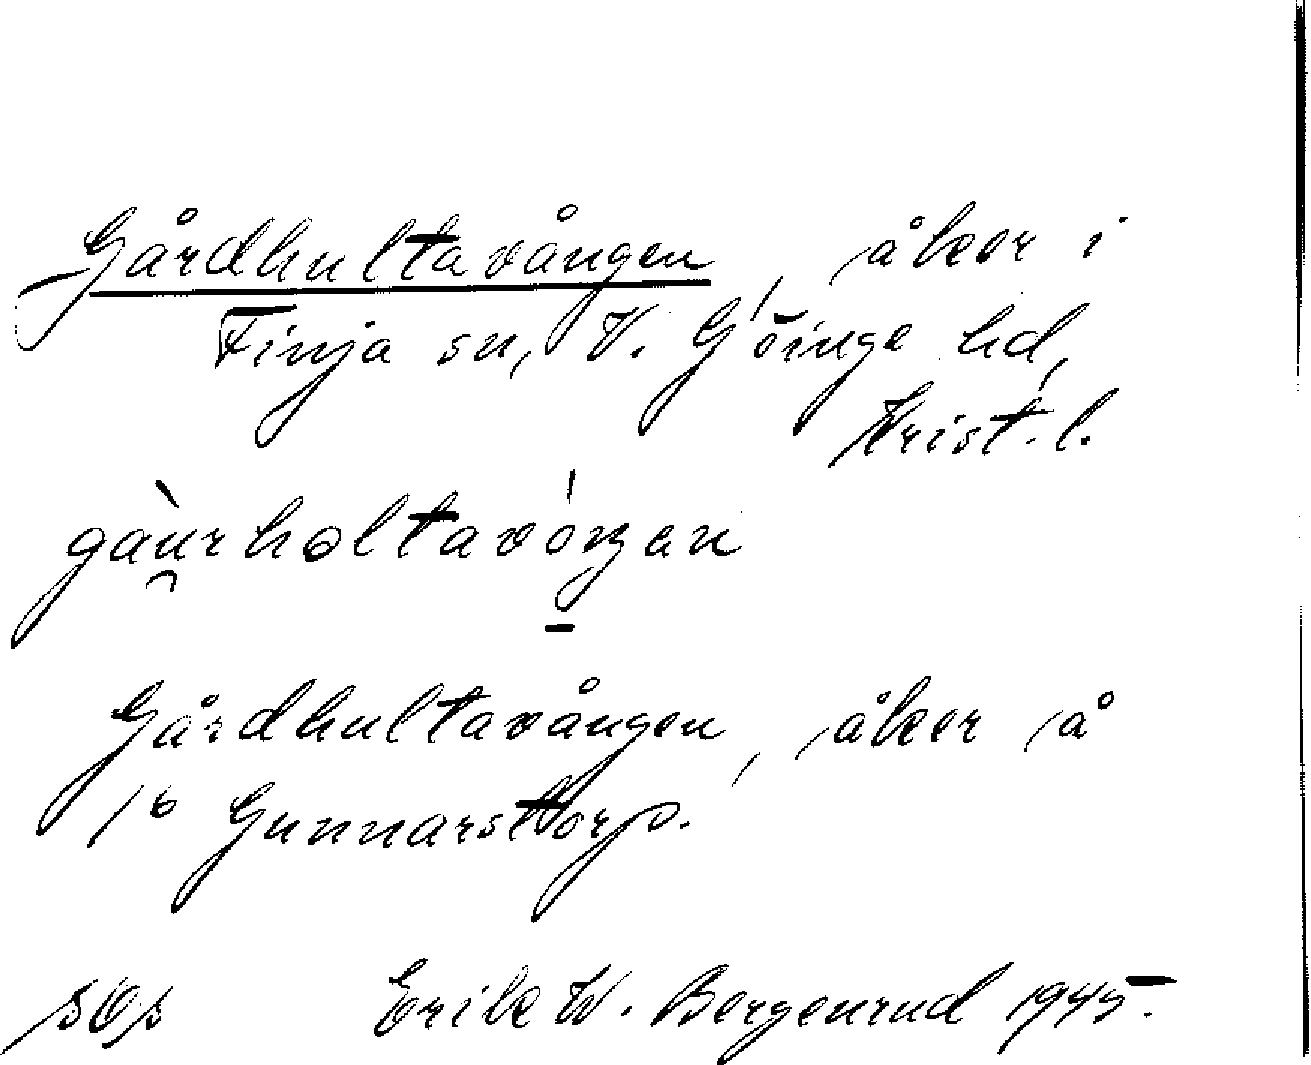 Gårdhultavången, åker i
Finja sn, V. Göinge hd,
Krist. l.
gàu̯rholtavóŋan
Gårdhultavången, åker å
1⁶ Gunnarstorp.
Erik W. Bergenrud 1945.